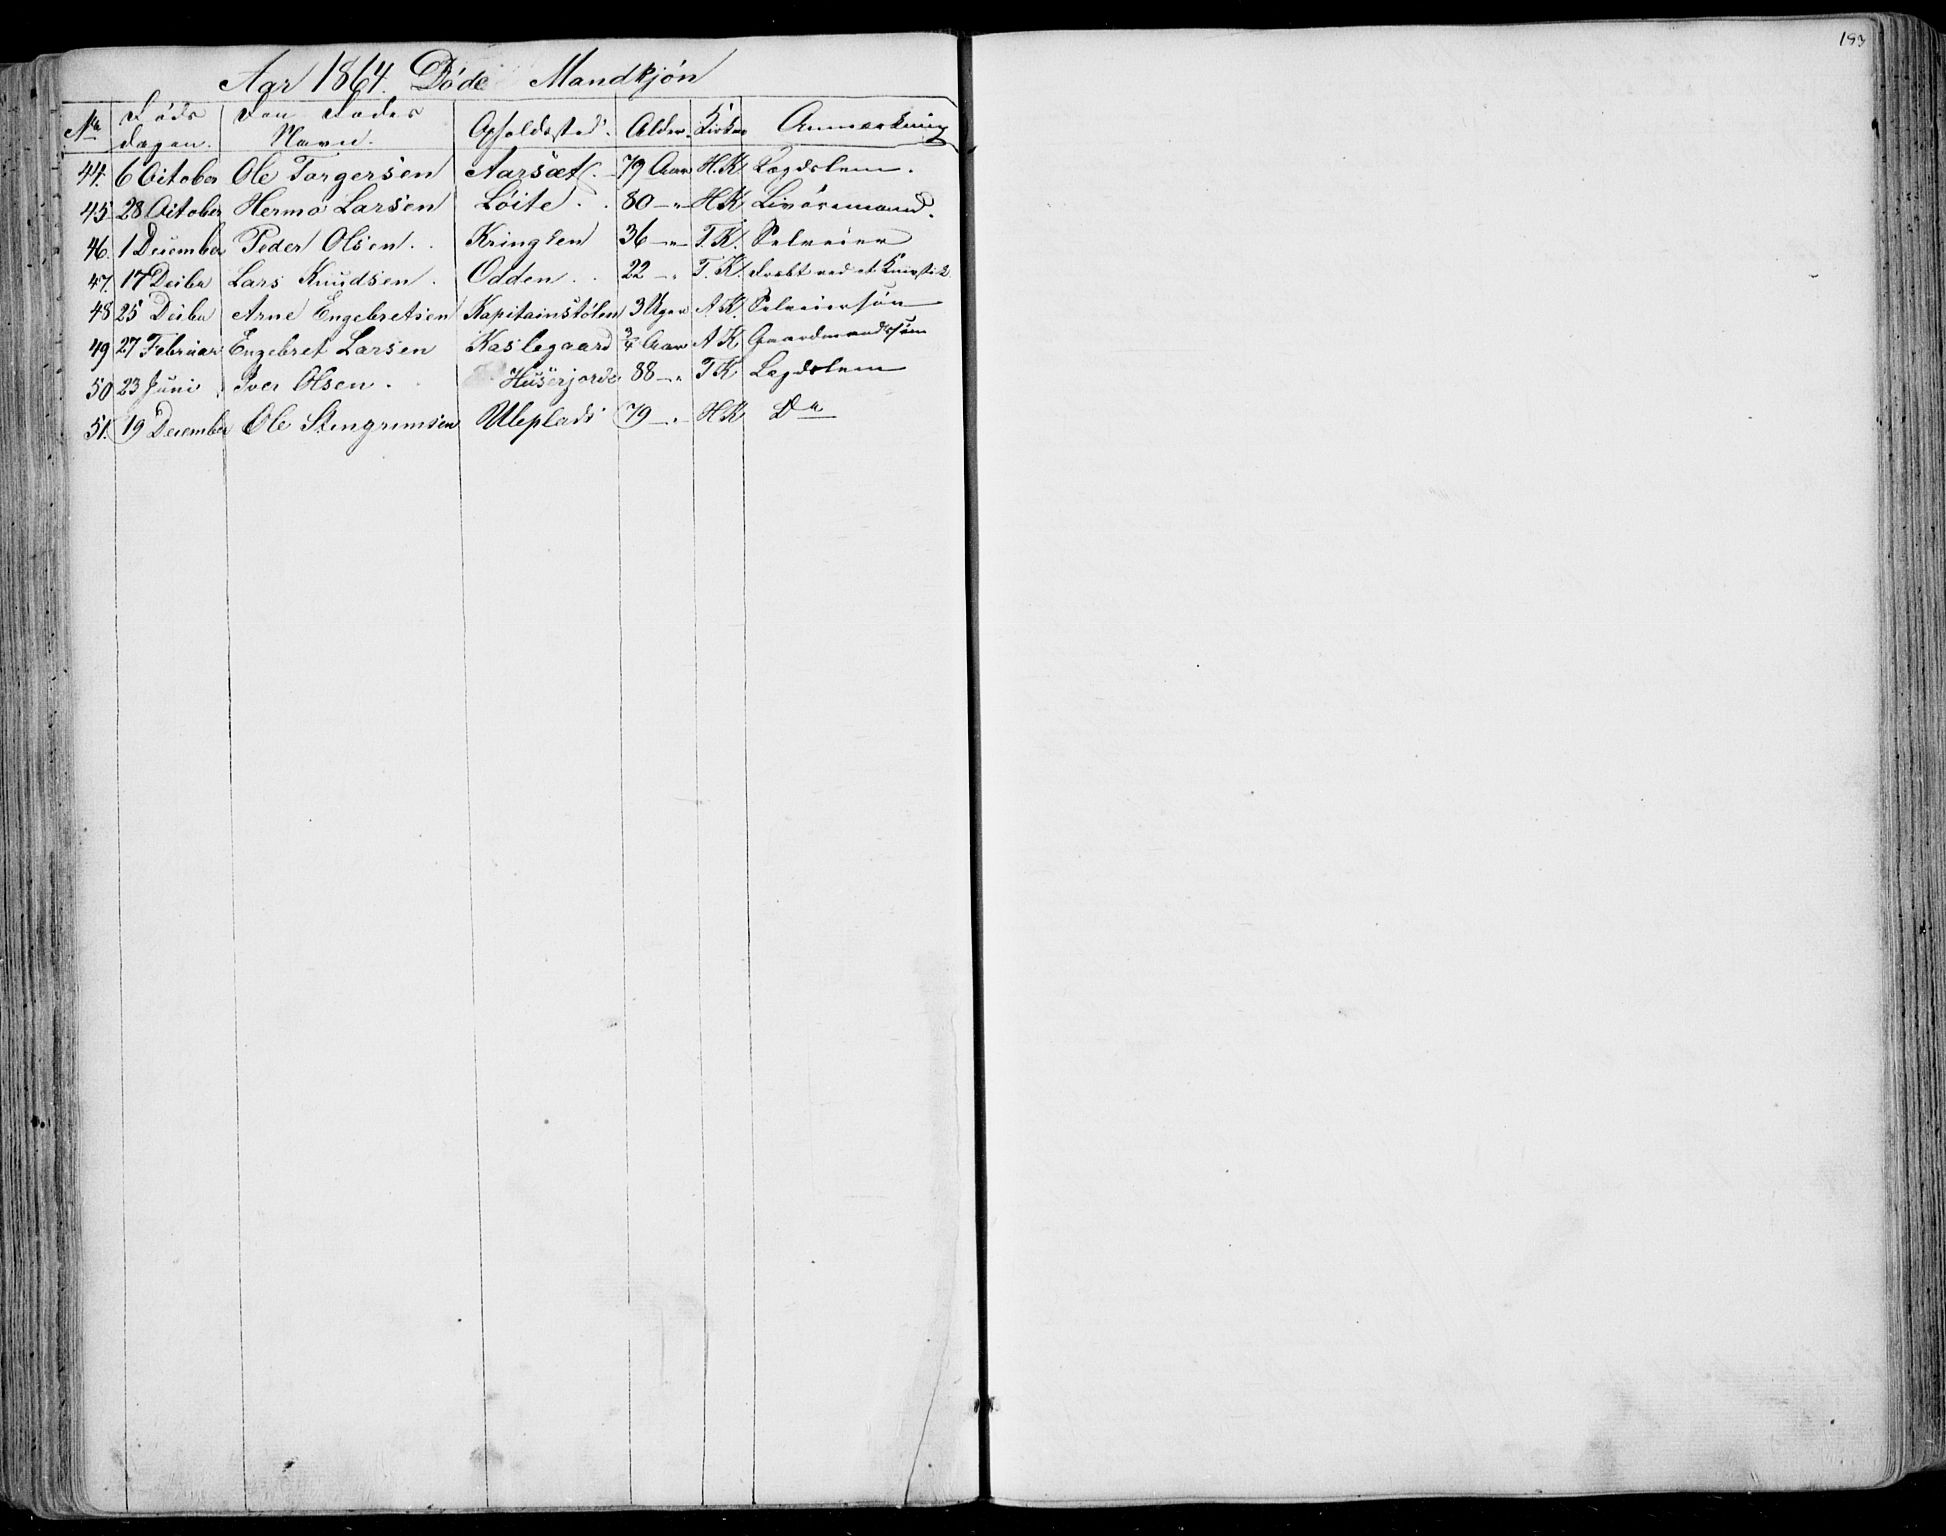 183
Aar 1864. Døde Mandkjøn
No Døds dagen. Den Dødes Navn. Opholdssted. Alder. Kirke Anmærkning
44. 6 October Ole Torgersen Aarsæt. 79 Aar H.K. Lægdslem.
45 28 October Hermo Larsen Löite. 80 -"- H K Livøremand.
46. 1 December Peder Olsen. Kringlen 36 -"- T.K. Selveier
47. 17 Decbr Lars Knudsen. Odden 22 -"- T.K. Dræbt ved et Knivstik
48 25 Decbr Arne Engebretsen Kapitainstølen 3 Uger A.K. Selveiersøn
49 27 Februar Engebret Larsen Kaslegaard 3/4 Aar A K Gaardmandssøn
50 23 Juni Iver Olsen. Huserjorde 88 -"- T K Lægdslem
51. 19 December Ole Stengrimsen Uleplads 79 -"- H K Do